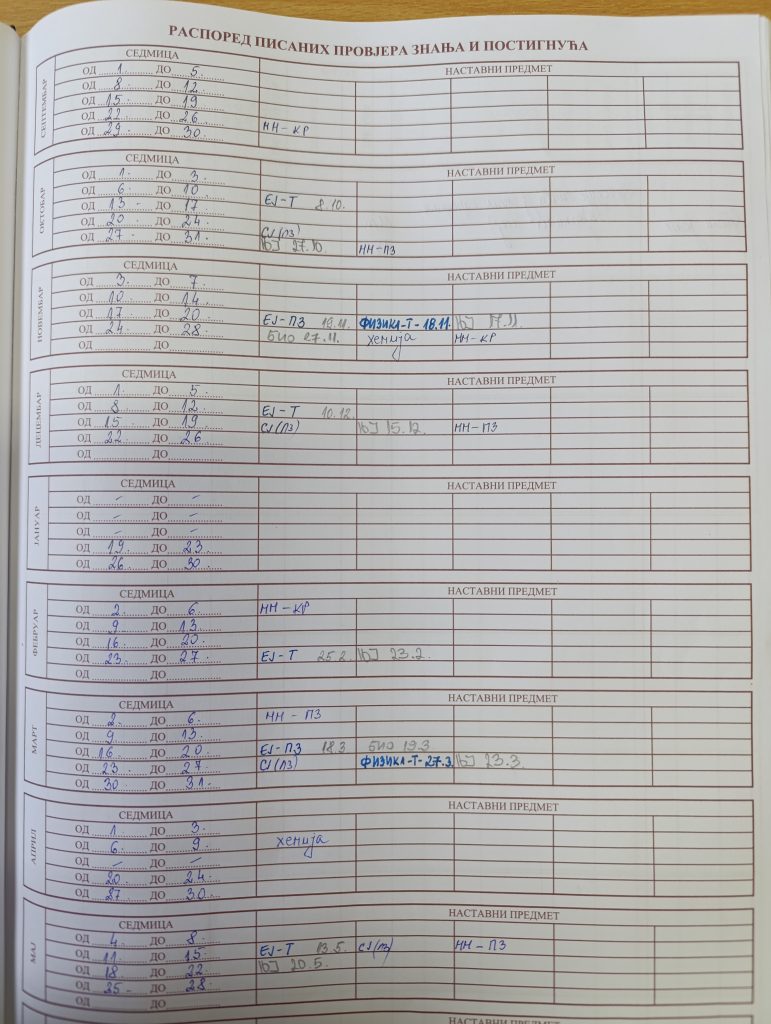 РАСПОРЕД ПИСАНИХ ПРОВЈЕРА ЗНАЊА И ПОСТИГНУЋА
СЕПТЕМБАР
СЕДМИЦА НАСТАВНИ ПРЕДМЕТ
ОД 1. ДО 5.
ОД 8. ДО 12
ОД 15. ДО 19
ОД 22 ДО 26
ОД 29. ДО 30. НН-КР
ОКТОБАР
СЕДМИЦА НАСТАВНИ ПРЕДМЕТ
ОД 1. ДО 3.
ОД 6. ДО 10
ОД 13. ДО 17 ЕЈ-Т 8.10.
ОД 20. ДО 24. СЈ(ПЗ)
ОД 27. ДО 31. ЊЈ 27.10 НН-ПЗ
НОВЕМБАР
СЕДМИЦА НАСТАВНИ ПРЕДМЕТ
ОД 3. ДО 7.
ОД 10. ДО 14.
ОД 17. ДО 20 ЕЈ-ПЗ 19.11. ФИЗИКА-Т-18.11. ЊЈ 17.11
ОД 24. ДО 28. БИО 27.11. хемија НН-КР
ОД ДО
ДЕЦЕМБАР
СЕДМИЦА НАСТАВНИ ПРЕДМЕТ
ОД 1. ДО 5.
ОД 8 ДО 12 ЕЈ-Т 10.12.
ОД 15 ДО 19 СЈ(ПЗ) ЊЈ 15.12. НН-ПЗ
ОД 22. ДО 26
ОД ДО
ЈАНУАР
СЕДМИЦА НАСТАВНИ ПРЕДМЕТ
ОД – ДО –
ОД – ДО –
ОД – ДО –
ОД 19. ДО 23.
ОД 26. ДО 30.
ФЕБРУАР
СЕДМИЦА НАСТАВНИ ПРЕДМЕТ
ОД 2. ДО 6. НН-КР
ОД 9 ДО 13.
ОД 16. ДО 20.
ОД 23. ДО 27. ЕЈ-Т 25.2. ЊЈ 23.2.
ОД ДО
МАРТ
СЕДМИЦА НАСТАВНИ ПРЕДМЕТ
ОД 2. ДО 6. НН - ПЗ
ОД 9 ДО 13.
ОД 16 ДО 20 ЕЈ-ПЗ 18.3 БИО 19.3
ОД 23. ДО 27 СЈ(ПЗ) ФИЗИКА-Т-27.3. ЊЈ 23.3.
ОД 30. ДО 31.
АПРИЛ
СЕДМИЦА НАСТАВНИ ПРЕДМЕТ
ОД 1 ДО 3.
ОД 6. ДО 9. хемија
ОД – ДО –
ОД 20 ДО 24.
ОД 27 ДО 30.
МАЈ
СЕДМИЦА НАСТАВНИ ПРЕДМЕТ
ОД 4. ДО 8.
ОД 11. ДО 15. ЕЈ-Т 13.5. СЈ(ПЗ) НН-ПЗ
ОД 18 ДО 22. ЊЈ 20.5.
ОД 25- ДО 28.
ОД ДО
СЕДМИЦА НАСТАВНИ ПРЕДМЕТ